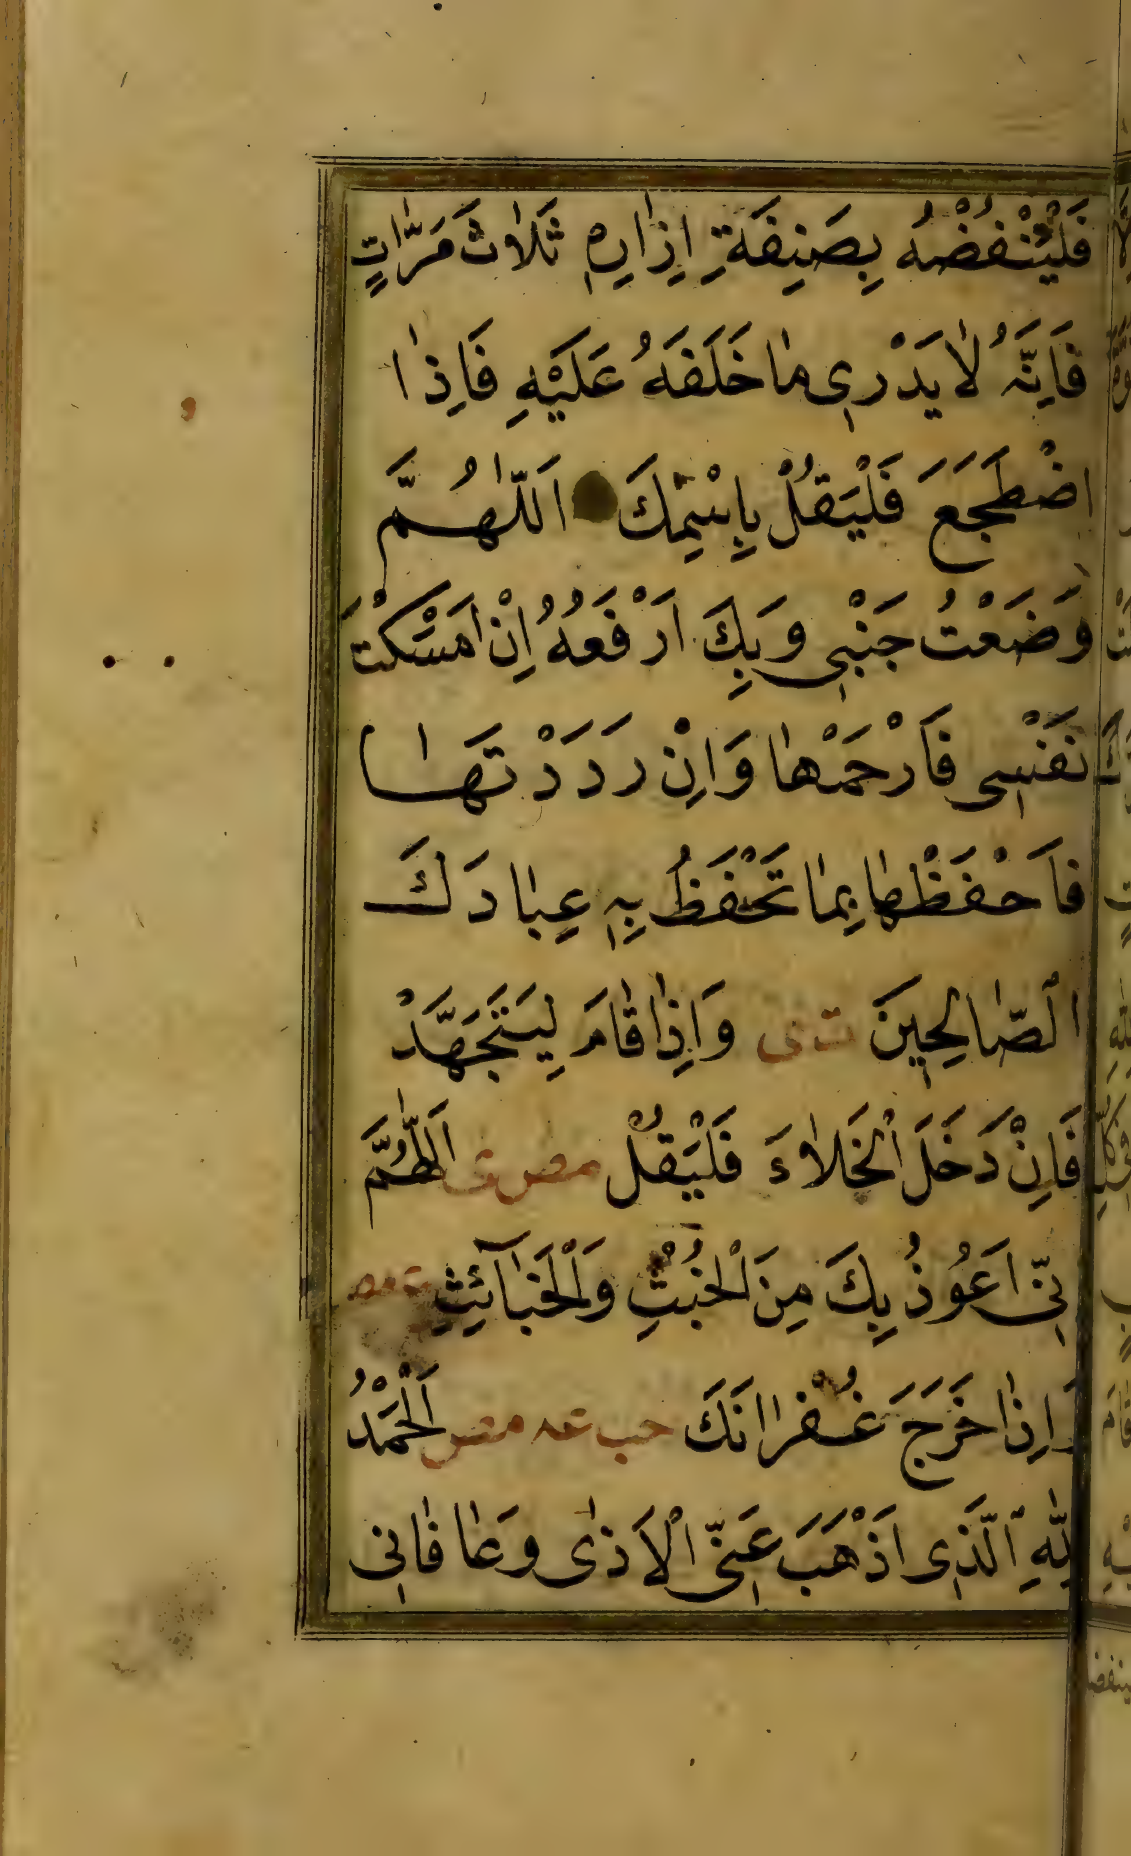 فَلْيَنْفُضْهُ بِصَنِفَةِ اِزَارِهِ ثَلَاثَ مَرَّاتٍ
فَاِنَّهُ لَا يَدْرِي مَا خَلَفَهُ عَلَيْهِ فَاِذَا
اضْطَجَعَ فَلْيَقُلْ بِاسْمِكَ اَللّٰهُمَّ
وَضَعْتُ جَنْبِي وَبِكَ اَرْفَعُهُ اِنْ اَمْسَكْتَ
نَفْسِي فَارْحَمْهَا وَاِنْ رَدَدْتَهَا
فَاحْفَظْهَا بِمَا تَحْفَظُ بِهِ عِبَادَكَ
الصَّالِحِينَ ت ى وَاِذَا قَامَ لِيَتَهَجَّدْ
فَاِنْ دَخَلَ الْخَلَاءَ فَلْيَقُلْ مص ى اَللّٰهُمَّ
اِنِّي اَعُوذُ بِكَ مِنَ الْخُبْثِ وَالْخَبَآئِثِ مص
وَاِذَا خَرَجَ غُفْرَانَكَ حب عه مص اَلْحَمْدُ
لِلّٰهِ الَّذِي اَذْهَبَ عَنِّي الْاَذٰى وَعَافَانِي